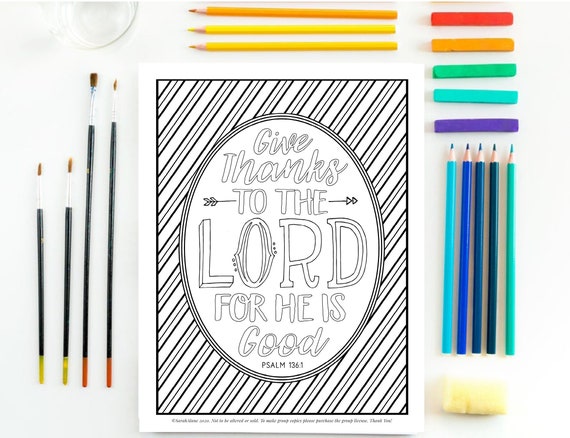 Give
Thanks
TO THE
LORD
FOR HE IS
Good
PSALM 136:1
©SarahJane 2020. Not to be altered or sold. To make group copies please purchase the group license. Thank You!